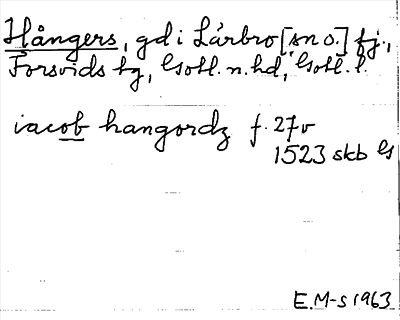 Hångers, gd i Lärbro [sn o.] fj.,
Forsvids tg, Gotl. n. hd, Gotl. l.
iacob hangordz f. 27v
1523 skb G
E.M-s 1963